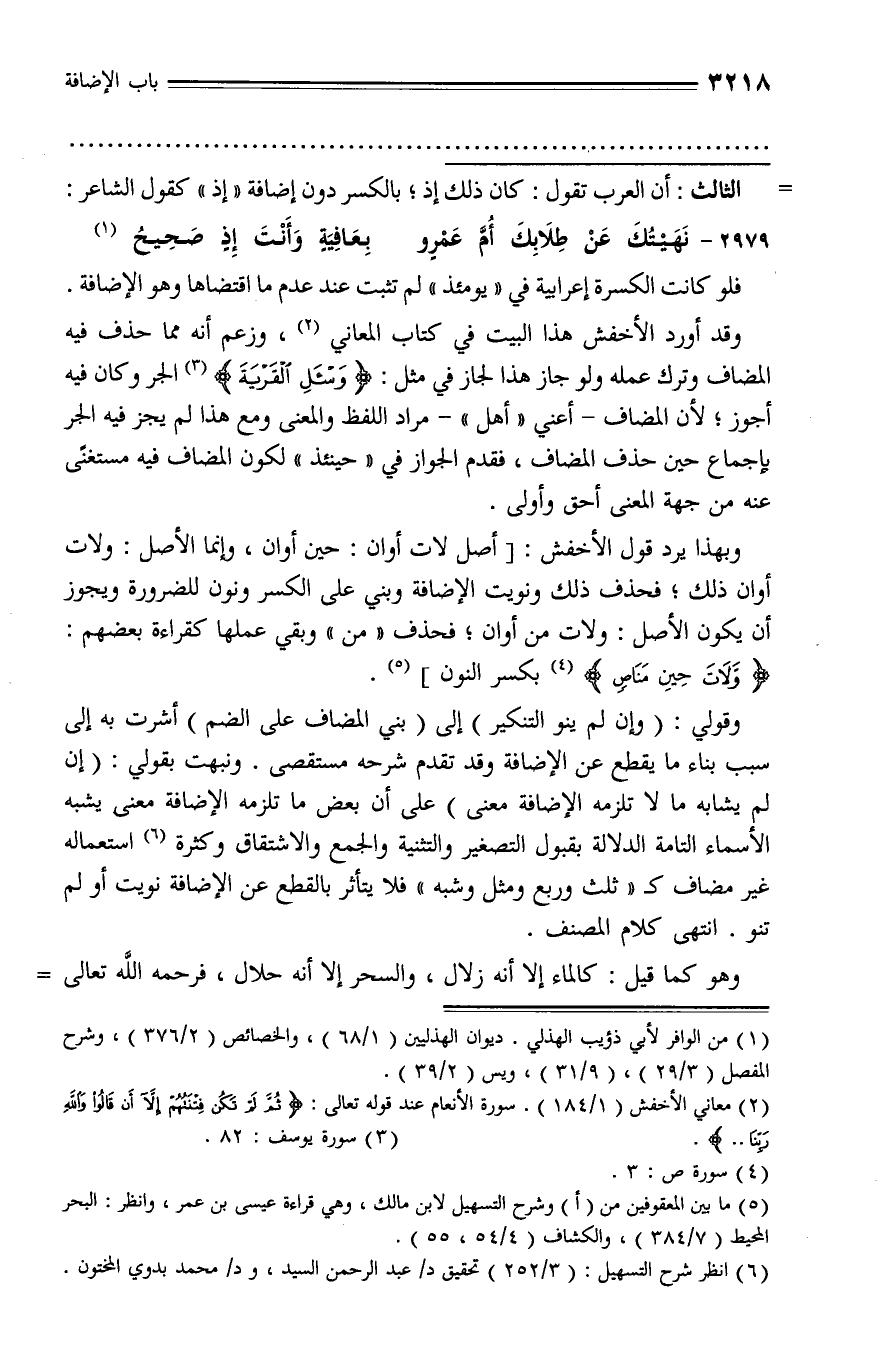 ٣٢١٨ باب الإضافة
= الثالث : أن العرب تقول : كان ذلك إذ ؛ بالكسر دون إضافة « إذ » كقول الشاعر :
٢٩٧٩ – نَهَيْتُكَ عَنْ طِلَابِكَ أُمَّ عَمْرٍو بِعَافِيَةٍ وَأَنْتَ إِذٍ صَحِيحُ (١)
فلو كانت الكسرة إعرابية في « يومئذ » لم تثبت عند عدم ما اقتضاها وهو الإضافة .
وقد أورد الأخفش هذا البيت في كتاب المعاني (٢) ، وزعم أنه مما حذف فيه
المضاف وترك عمله ولو جاز هذا لجاز في مثل : ﴿ وَسْـَٔلِ ٱلْقَرْيَةَ ﴾ (٣) الجر وكان فيه
أجوز ؛ لأن المضاف – أعني « أهل » – مراد اللفظ والمعنى ومع هذا لم يجز فيه الجر
بإجماع حين حذف المضاف ، فقدم الجواز في « حينئذ » لكون المضاف فيه مستغنًى
عنه من جهة المعنى أحق وأولى .
وبهذا يرد قول الأخفش : [ أصل لات أوان : حين أوان ، وإنما الأصل : ولات
أوان ذلك ؛ فحذف ذلك ونويت الإضافة وبني على الكسر ونون للضرورة ويجوز
أن يكون الأصل : ولات من أوان ؛ فحذف « من » وبقي عملها كقراءة بعضهم :
﴿ وَّلَاتَ حِينِ مَنَاصٍ ﴾ (٤) بكسر النون ] (٥) .
وقولي : ( وإن لم ينو التنكير ) إلى ( بني المضاف على الضم ) أشرت به إلى
سبب بناء ما يقطع عن الإضافة وقد تقدم شرحه مستقصى . ونبهت بقولي : ( إن
لم يشابه ما لا تلزمه الإضافة معنى ) على أن بعض ما تلزمه الإضافة معنى يشبه
الأسماء التامة الدلالة بقبول التصغير والتثنية والجمع والاشتقاق وكثرة (٦) استعماله
غير مضاف كـ « ثلث وربع ومثل وشبه » فلا يتأثر بالقطع عن الإضافة نويت أو لم
تنو . انتهى كلام المصنف .
وهو كما قيل : كالماء إلا أنه زلال ، والسحر إلا أنه حلال ، فرحمه اللَّه تعالى =
(١) من الوافر لأبي ذؤيب الهذلي . ديوان الهذليين ( ٦٨/١ ) ، والخصائص ( ٣٧٦/٢ ) ، وشرح
المفصل ( ٢٩/٣ ) ، ( ٣١/٩ ) ، ويس ( ٣٩/٢ ) .
(٢) معاني الأخفش ( ١٨٤/١ ) . سورة الأنعام عند قوله تعالى : ﴿ ثُمَّ لَمْ تَكُن فِتْنَتُهُمْ إِلَّآ أَن قَالُوا۟ وَٱللَّهِ
رَبِّنَا .. ﴾ . (٣) سورة يوسف : ٨٢ .
(٤) سورة ص : ٣ .
(٥) ما بين المعقوفين من ( أ ) وشرح التسهيل لابن مالك ، وهي قراءة عيسى بن عمر ، وانظر : البحر
المحيط ( ٣٨٤/٧ ) ، والكشاف ( ٥٤/٤ ، ٥٥ ) .
(٦) انظر شرح التسهيل : ( ٢٥٢/٣ ) تحقيق د/ عبد الرحمن السيد ، و د/ محمد بدوي المختون .